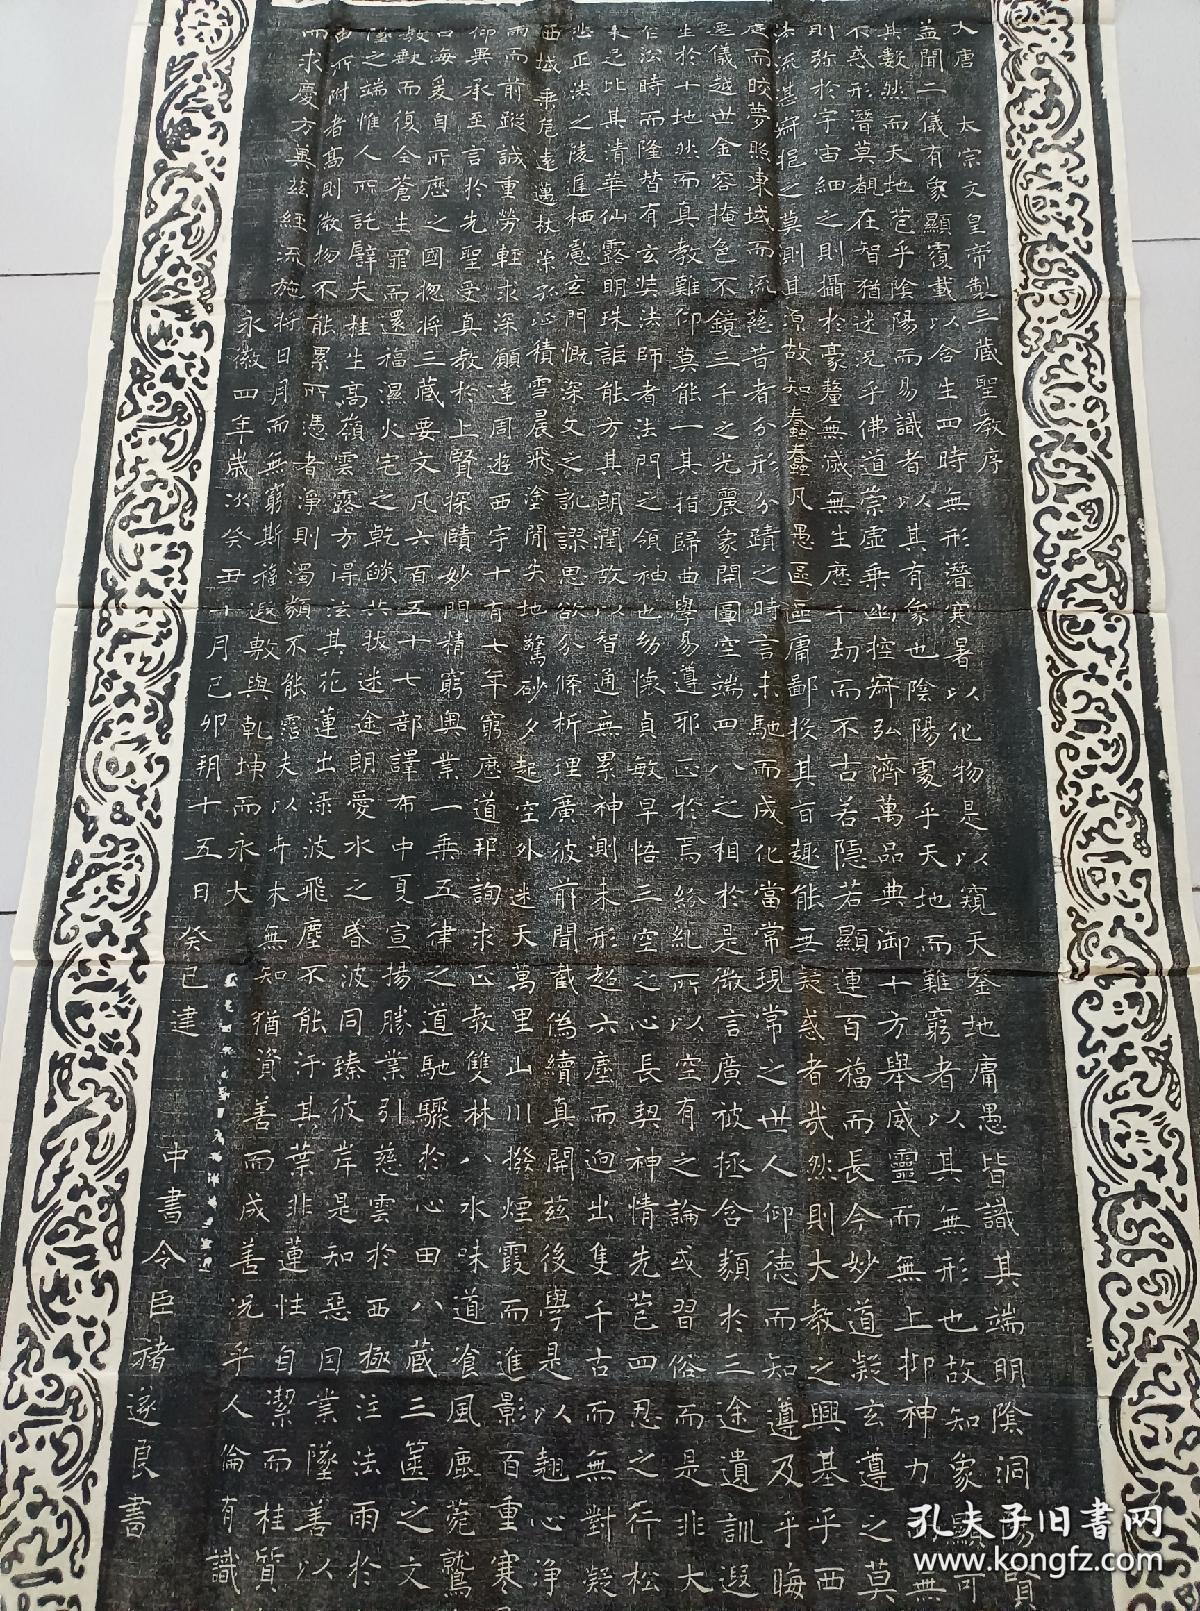 大唐　太宗文皇帝製三藏聖教序
蓋聞二儀有象顯覆載以含生四時無形潛寒暑以化物是以窺天鑒地庸愚皆識其端明陰洞陽賢
其數然而天地苞乎陰陽而易識者以其有象也陰陽處乎天地而難窮者以其無形也故知象顯可
不惑形潛莫覩在智猶迷況乎佛道崇虛乘幽控寂弘濟萬品典御十方舉威靈而無上抑神力無
則彌於宇宙細之則攝於豪釐無滅無生歷千劫而不古若隱若顯運百福而長今妙道凝玄遵之莫
法流湛寂挹之莫測其源故知蠢蠢凡愚區區庸鄙投其旨趣能無疑惑者哉然則大教之興基乎西
庭而皎夢照東域而流慈昔者分形分蹟之時言未馳而成化當常現常之世人仰德而知遵及乎晦
遷儀越世金容掩色不鏡三千之光麗象開圖空端四八之相於是微言廣被拯含類於三途遺訓遐
生於十地然而真教難仰莫能一其指歸曲學易遵邪正於焉紛糺所以空有之論或習俗而是非大
乍沿時而隆替有玄奘法師者法門之領袖也幼懷貞敏早悟三空之心長契神情先苞四忍之行松
未足比其清華仙露明珠詎能方其朗潤故以智通無累神測未形超六塵而迥出隻千古而無對凝
悲正法之陵遲栖慮玄門慨深文之訛謬思欲分條析理廣彼前聞截偽續真開茲後學是以翹心淨
西域乘危遠邁杖策孤征積雪晨飛塗間失地驚砂夕起空外迷天萬里山川撥煙霞而進影百重寒
雨而前蹤誠重勞輕求深願達周遊西宇十有七年窮歷道邦詢求正教雙林八水味道飡風鹿菀鷲
仰異承至言於先聖受真教於上賢探賾妙門精窮奧業一乘五律之道馳驟於心田八藏三篋之文
口海爰自所歷之國惣將三藏要文凡六百五十七部譯布中夏宣揚勝業引慈雲於西極注法雨於
教缺而復全蒼生罪而還福濕火宅之乾燄共拔迷途朗愛水之昏波同臻彼岸是知惡因業墜善以
墜之端惟人所託譬夫桂生高嶺雲露方得泫其花蓮出淥波飛塵不能汙其葉非蓮性自潔而桂質
由所附者高則微物不能累所憑者淨則濁類不能霑夫以卉木無知猶資善而成善況乎人倫有識
而求慶方冀茲經流施將日月而無窮斯福遐敷與乾坤而永大
永徽四年歲次癸丑十月己卯朔十五日癸巳建　中書令臣褚遂良書
孔夫子旧书网
www.kongfz.com